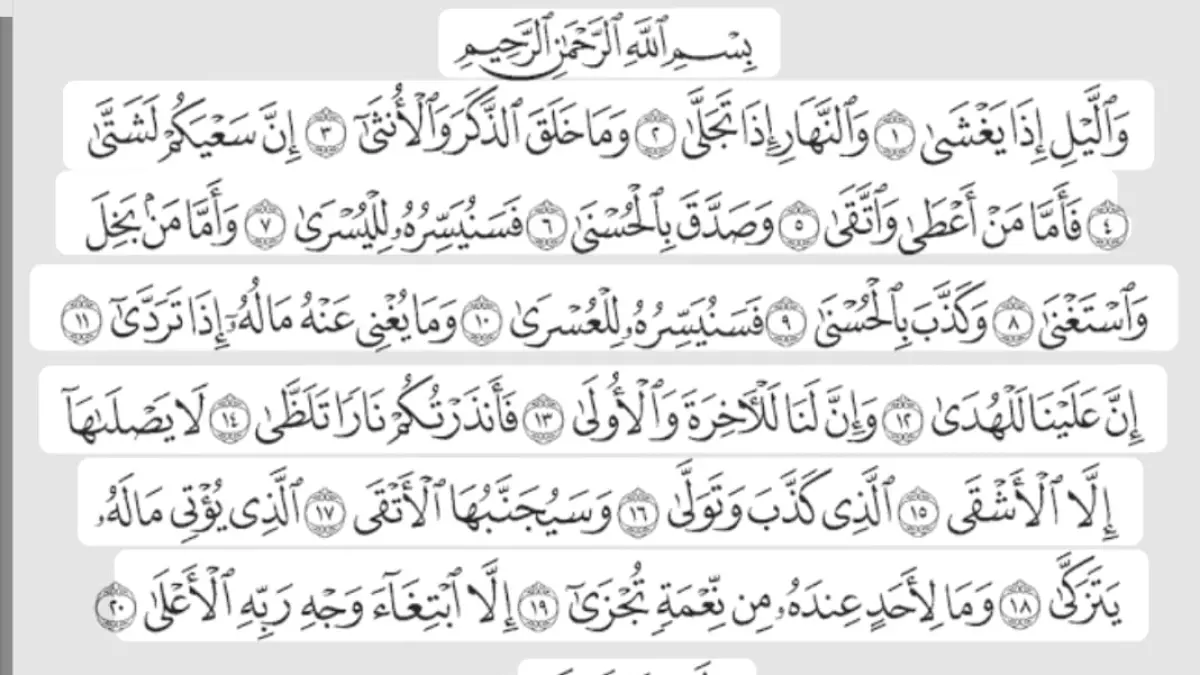 بِسْمِ ٱللَّهِ ٱلرَّحْمَٰنِ ٱلرَّحِيمِ
وَٱلَّيْلِ إِذَا يَغْشَىٰ ١ وَٱلنَّهَارِ إِذَا تَجَلَّىٰ ٢ وَمَا خَلَقَ ٱلذَّكَرَ وَٱلْأُنثَىٰٓ ٣ إِنَّ سَعْيَكُمْ لَشَتَّىٰ
٤ فَأَمَّا مَنْ أَعْطَىٰ وَٱتَّقَىٰ ٥ وَصَدَّقَ بِٱلْحُسْنَىٰ ٦ فَسَنُيَسِّرُهُۥ لِلْيُسْرَىٰ ٧ وَأَمَّا مَنۢ بَخِلَ
وَٱسْتَغْنَىٰ ٨ وَكَذَّبَ بِٱلْحُسْنَىٰ ٩ فَسَنُيَسِّرُهُۥ لِلْعُسْرَىٰ ١٠ وَمَا يُغْنِى عَنْهُ مَالُهُۥٓ إِذَا تَرَدَّىٰٓ ١١
إِنَّ عَلَيْنَا لَلْهُدَىٰ ١٢ وَإِنَّ لَنَا لَلْءَاخِرَةَ وَٱلْأُولَىٰ ١٣ فَأَنذَرْتُكُمْ نَارًا تَلَظَّىٰ ١٤ لَا يَصْلَىٰهَآ
إِلَّا ٱلْأَشْقَى ١٥ ٱلَّذِى كَذَّبَ وَتَوَلَّىٰ ١٦ وَسَيُجَنَّبُهَا ٱلْأَتْقَى ١٧ ٱلَّذِى يُؤْتِى مَالَهُۥ
يَتَزَكَّىٰ ١٨ وَمَا لِأَحَدٍ عِندَهُۥ مِن نِّعْمَةٍ تُجْزَىٰٓ ١٩ إِلَّا ٱبْتِغَآءَ وَجْهِ رَبِّهِ ٱلْأَعْلَىٰ ٢٠